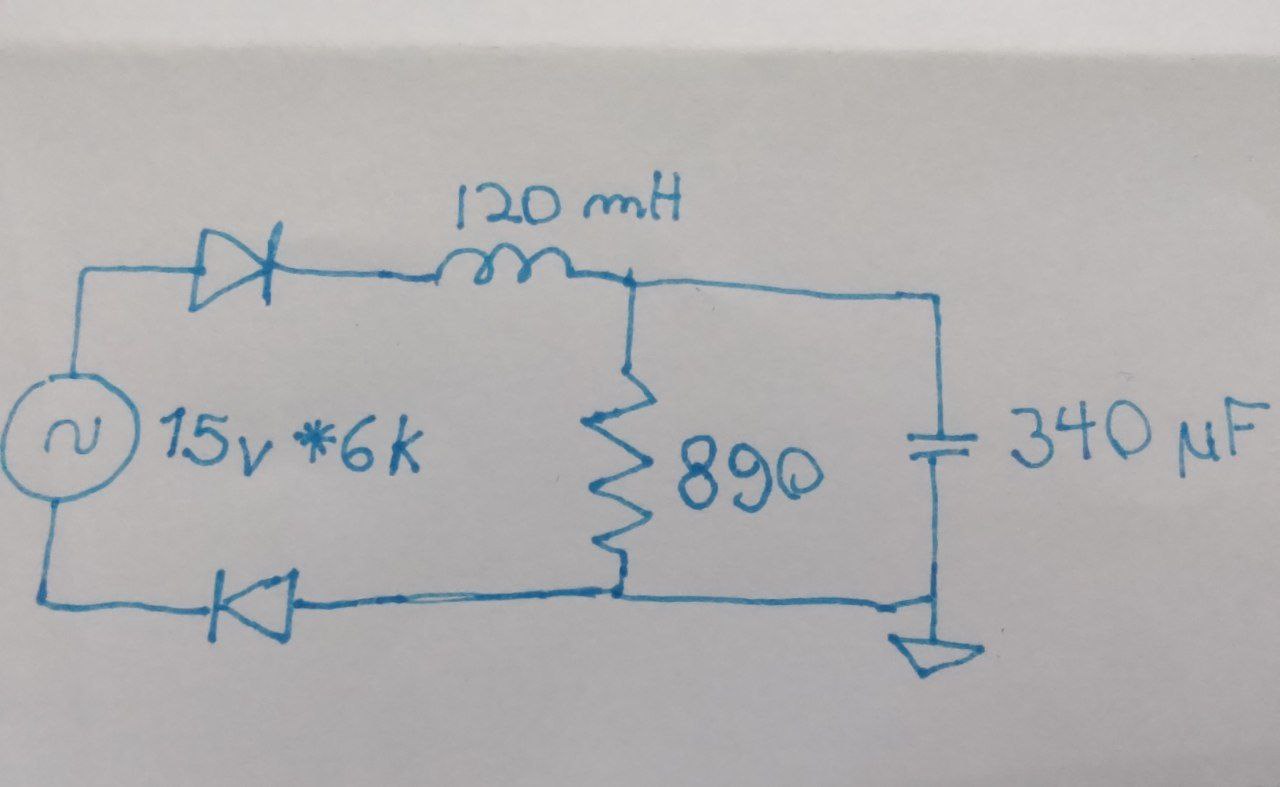 120 mH
15v *6k
890
340 µF